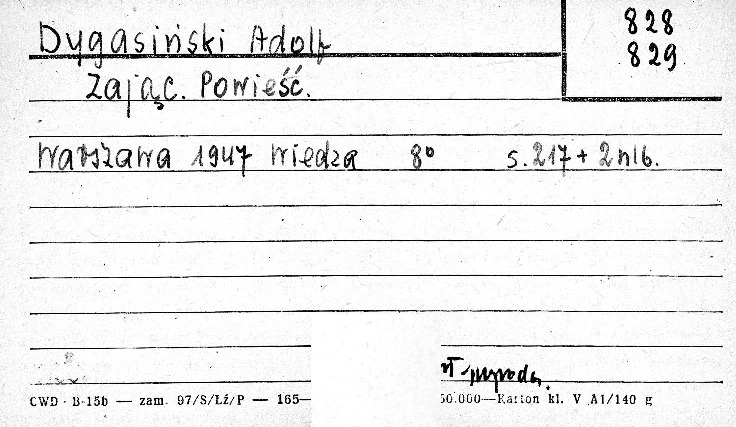 Dygasiński Adolf
828
829
Zając. Powieść.
Warszawa 1947 Wiedza 8° s. 217 + 2 nlb.
CWD - B-15b — zam. 97/S/Łź/P — 165— 50.000—Karton kl. V A1/140 g